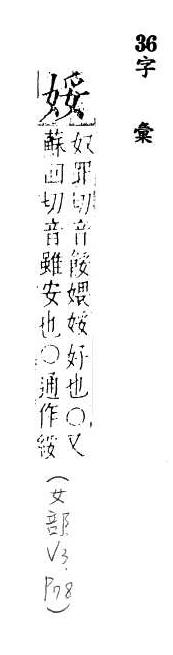 36字　彙
娞
奴罪切音餒㛱娞好也○又
蘇回切音雖安也○通作綏
(女部V3.P78)